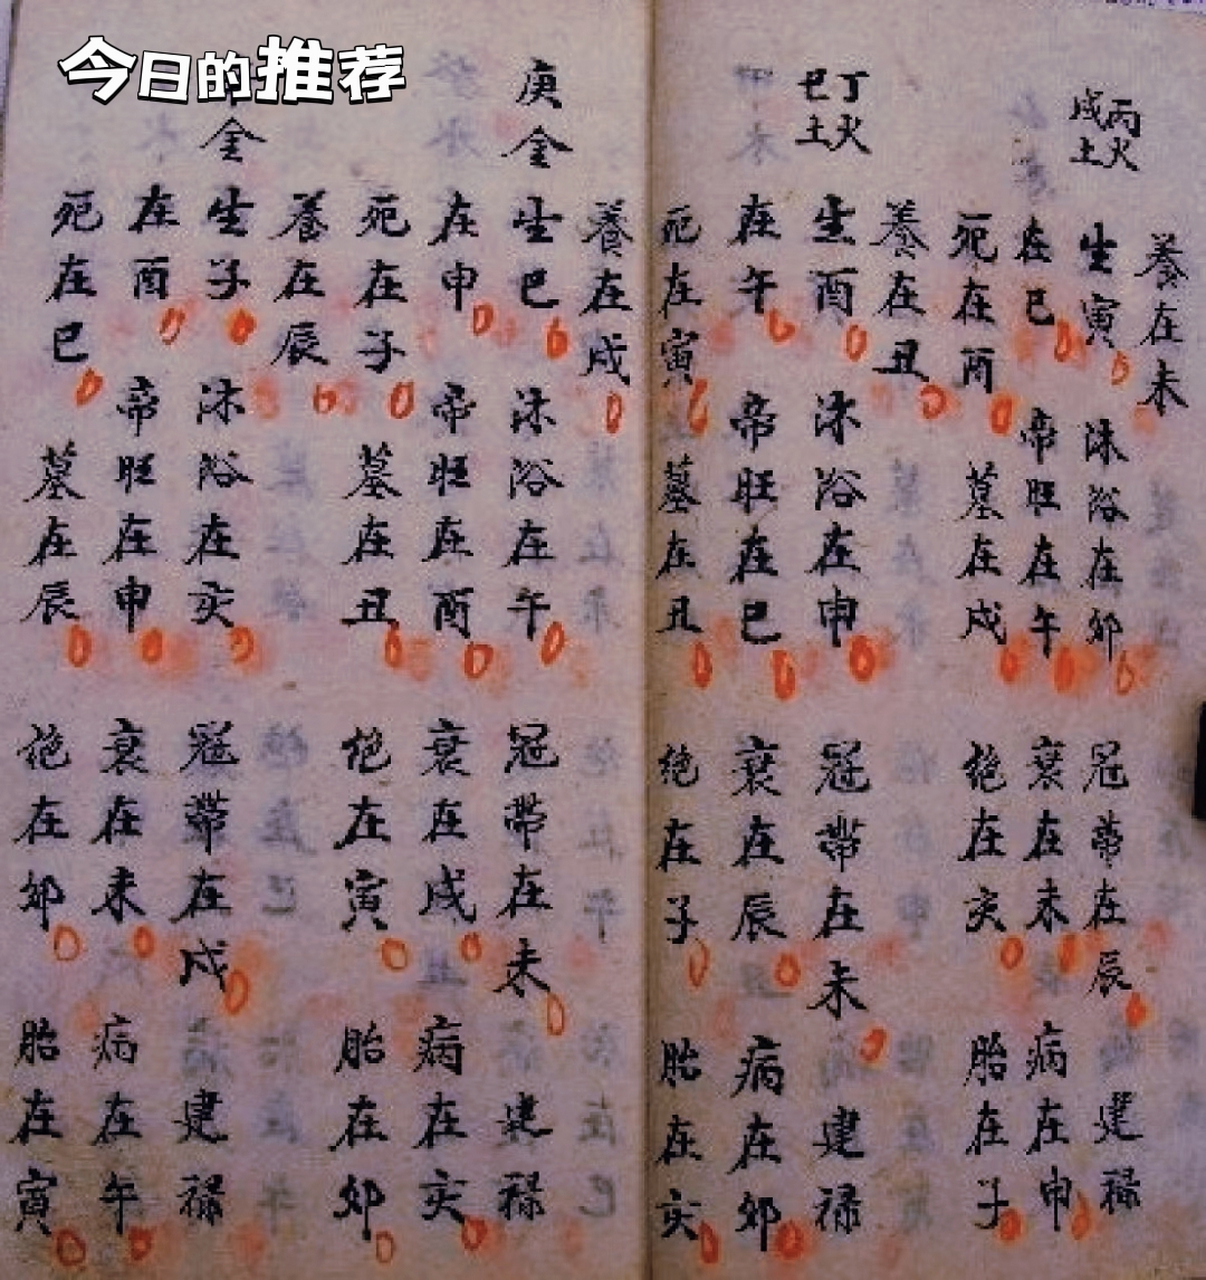 今日的推荐
養在未
丙火
戊土
生寅 沐浴在卯 冠帶在辰 建祿
在巳 帝旺在午 衰在未 病在申
死在酉 墓在戌 絶在亥 胎在子
養在丑
丁火
己土
生酉 沐浴在申 冠帶在未 建祿
在午 帝旺在巳 衰在辰 病在卯
死在寅 墓在丑 絶在子 胎在亥
養在戌
庚金 生巳 沐浴在午 冠帶在未 建祿
在申 帝旺在酉 衰在戌 病在亥
死在子 墓在丑 绝在寅 胎在卯
養在辰
金 生子 沐浴在亥 冠帶在戌 建祿
在酉 帝旺在申 衰在未 病在午
死在巳 墓在辰 絶在卯 胎在寅